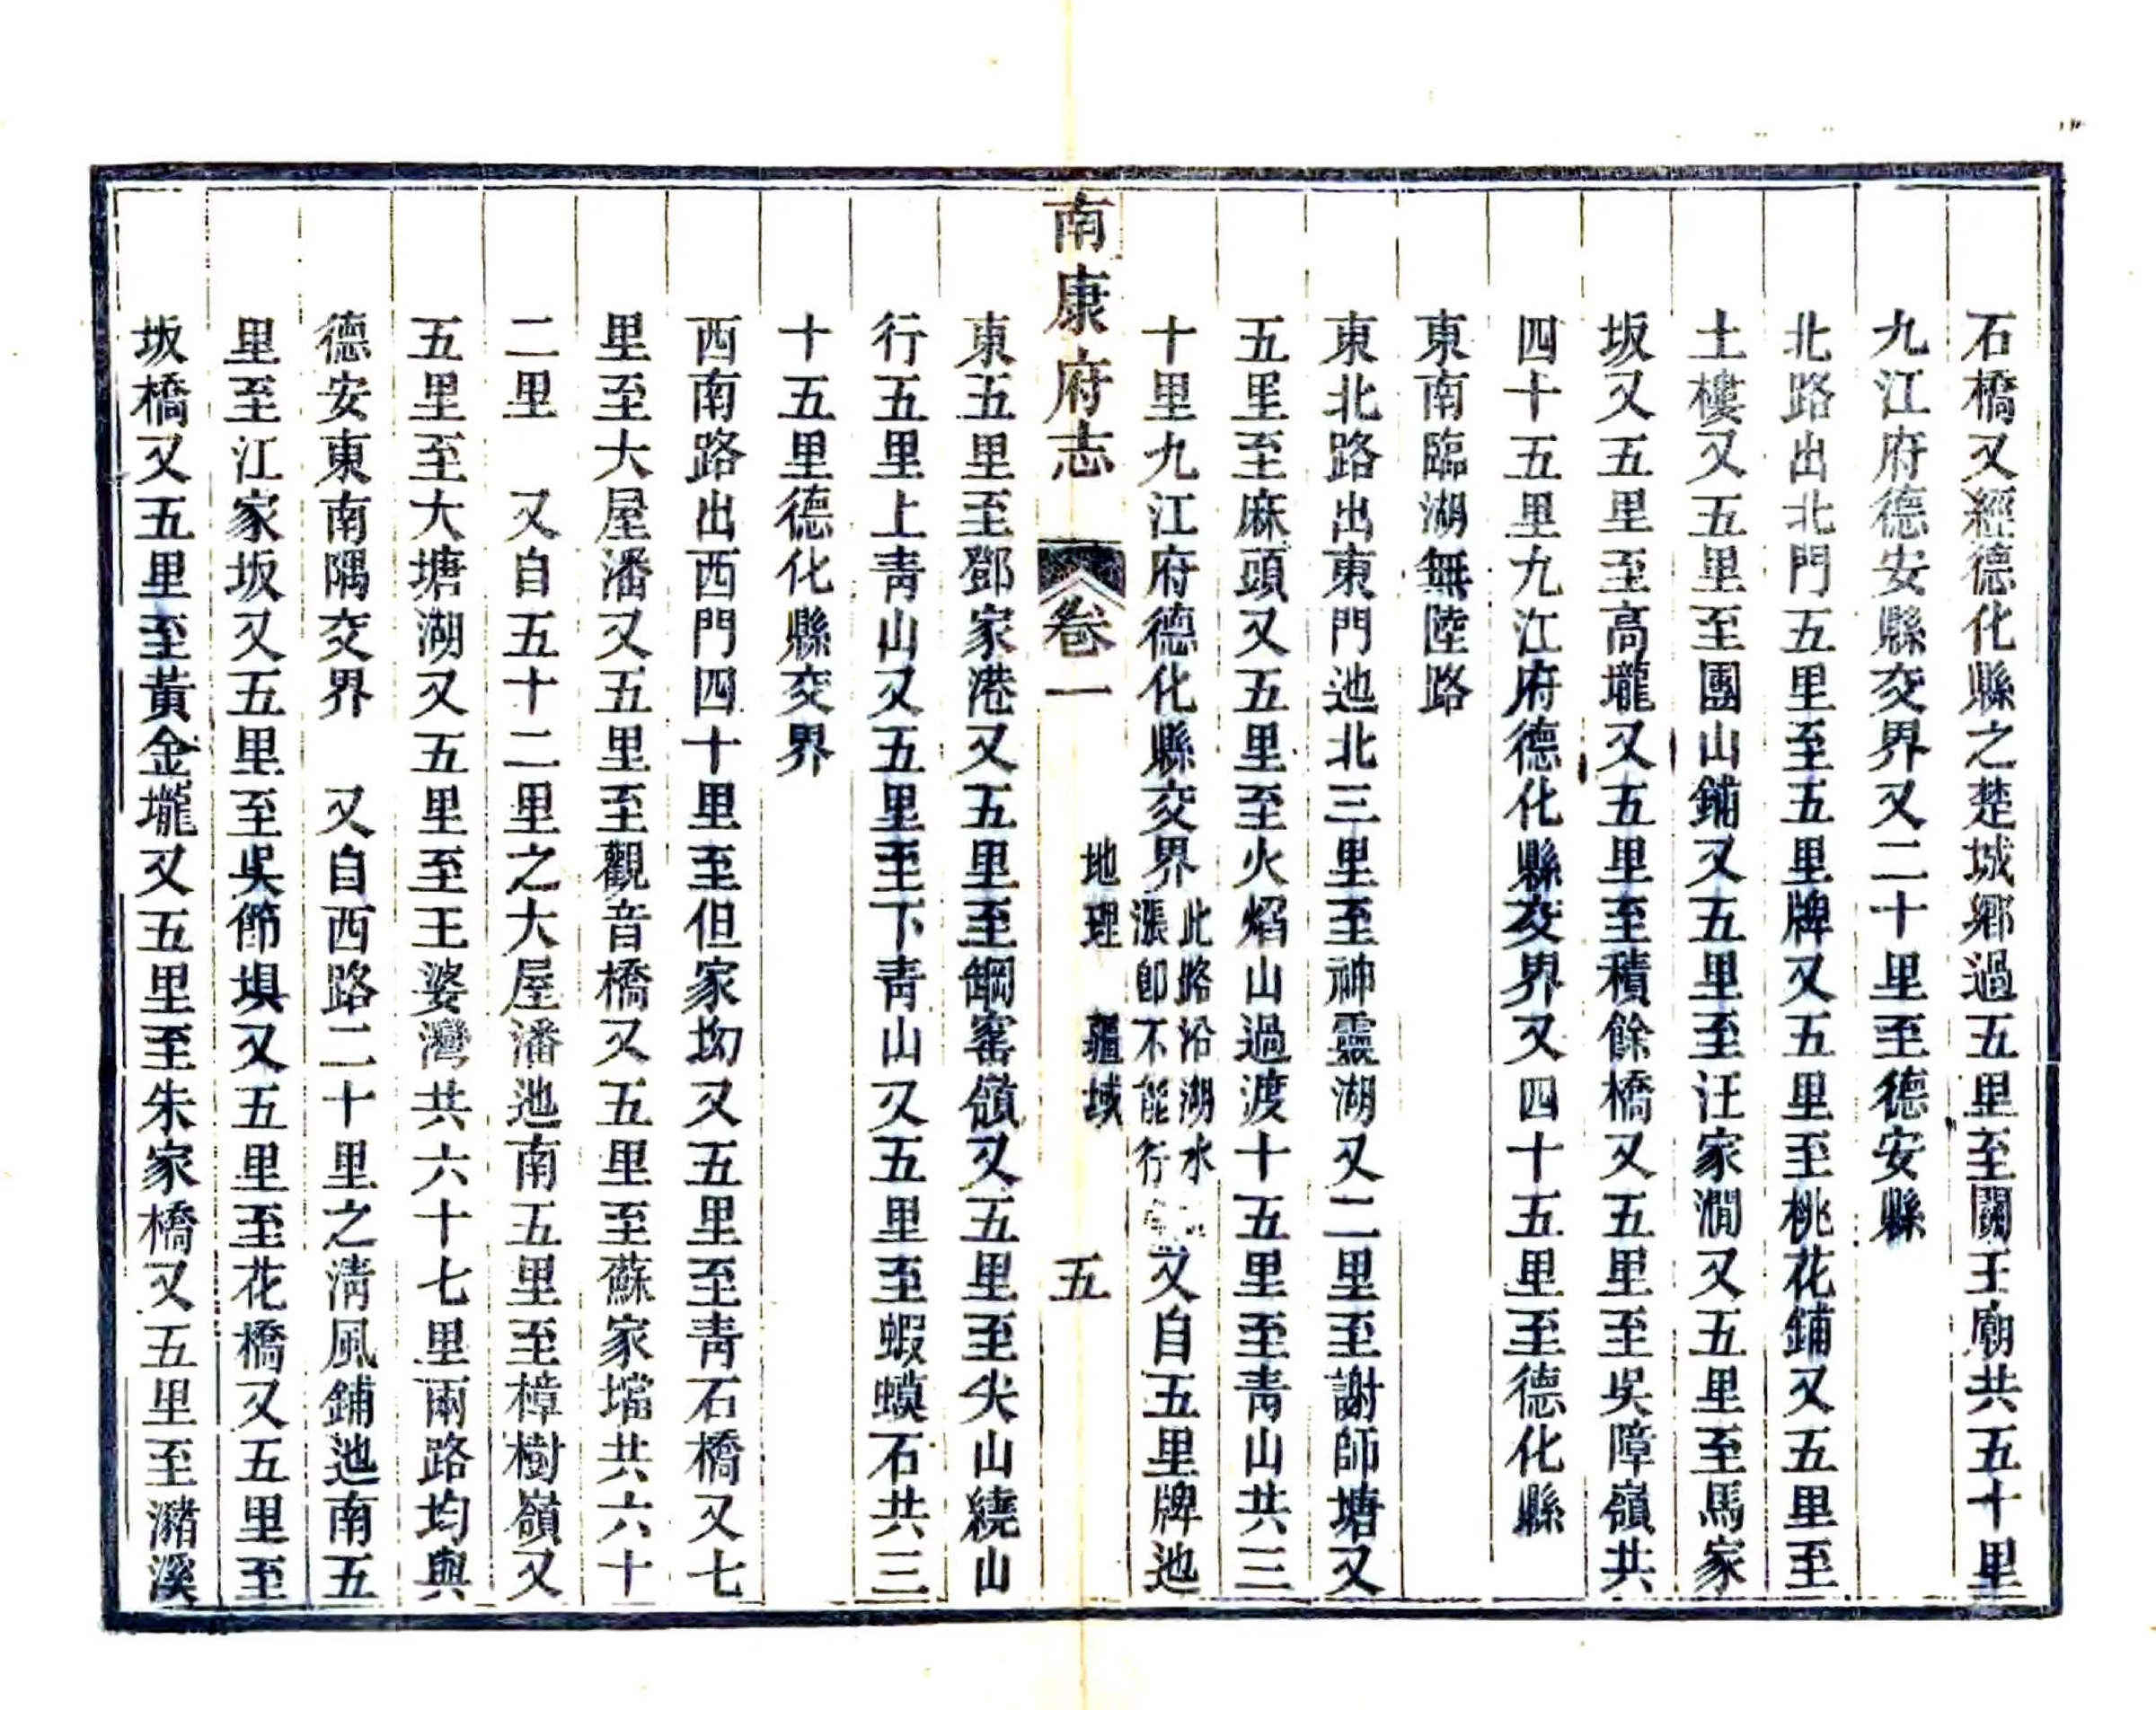 石橋又經德化縣之楚城鄉過五里至關王廟共五十里
九江府德安縣交界又二十里至德安縣
北路出北門五里至五里牌又五里至桃花鋪又五里至
土樓又五里至團山鋪又五里至汪家澗又五里至馬家
坂又五里至高壠又五里至積餘橋又五里至吳障嶺共
四十五里九江府德化縣交界又四十五里至德化縣
東南臨湖無陸路
東北路出東門迆北三里至神靈湖又二里至謝師塘又
五里至麻頭又五里至火焰山過渡十五里至青山共三
十里九江府德化縣交界此路沿湖水漲卽不能行又自五里牌迆
南康府志 卷一 地理 疆域 五
東五里至鄧家港又五里至鋼窰嶺又五里至尖山繞山
行五里上青山又五里至下青山又五里至蝦蟆石共三
十五里德化縣交界
西南路出西門四十里至但家坳又五里至青石橋又七
里至大屋潘又五里至觀音橋又五里至蘇家壋共六十
二里 又自五十二里之大屋潘迆南五里至樟樹嶺又
五里至大塘湖又五里至王婆灣共六十七里兩路均與
德安東南隅交界 又自西路二十里之清風鋪迆南五
里至江家坂又五里至吳節垻又五里至花橋又五里至
坂橋又五里至黃金壠又五里至朱家橋又五里至瀦溪